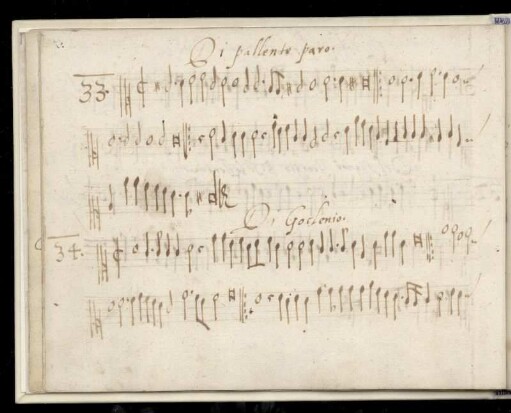 Di pallente paro.
33.
Di Goslenio.
34.